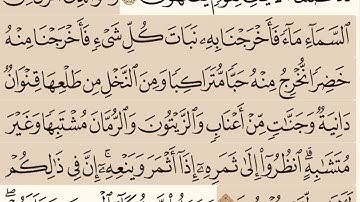 السَّمَآءِ مَآءً فَأَخْرَجْنَا بِهِۦ نَبَاتَ كُلِّ شَىْءٍ فَأَخْرَجْنَا مِنْهُ
خَضِرًا نُّخْرِجُ مِنْهُ حَبًّا مُّتَرَاكِبًا وَمِنَ النَّخْلِ مِن طَلْعِهَا قِنْوَانٌ
دَانِيَةٌ وَجَنَّٰتٍ مِّنْ أَعْنَابٍ وَالزَّيْتُونَ وَالرُّمَّانَ مُشْتَبِهًا وَغَيْرَ
مُتَشَٰبِهٍ ۗ انظُرُوٓا۟ إِلَىٰ ثَمَرِهِۦٓ إِذَآ أَثْمَرَ وَيَنْعِهِۦٓ ۚ إِنَّ فِى ذَٰلِكُمْ